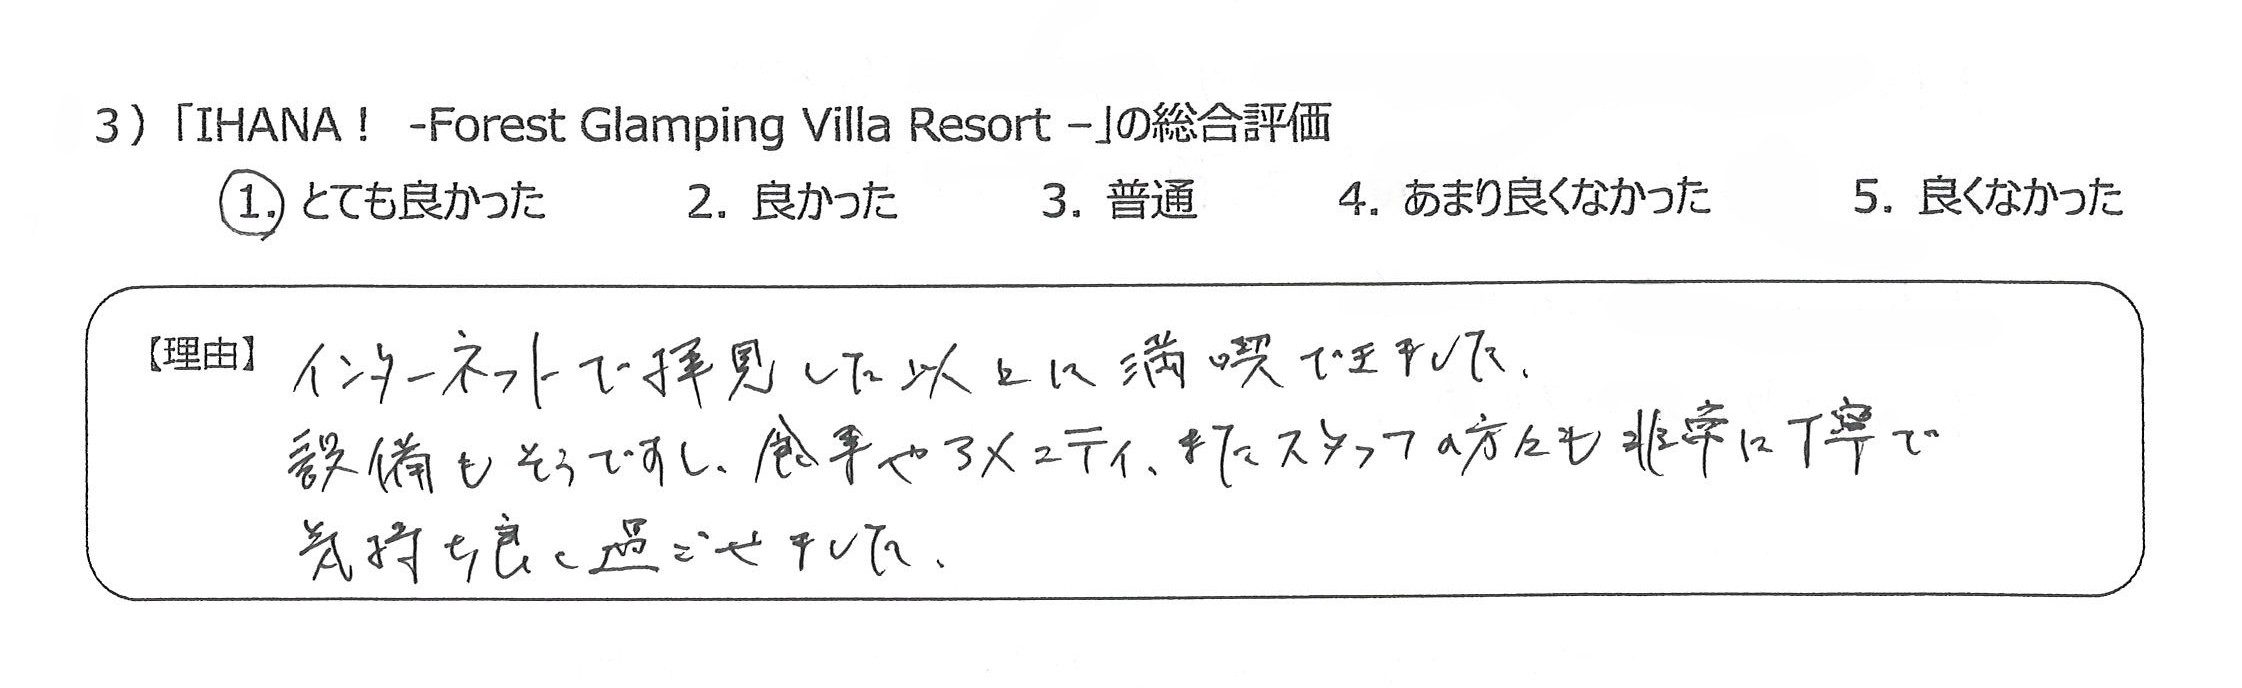 3）「IHANA！ -Forest Glamping Villa Resort –」の総合評価
1. とても良かった 2. 良かった 3. 普通 4. あまり良くなかった 5. 良くなかった
【理由】インターネットで拝見した以上に満喫できました。
設備もそうですし、食事やアメニティ、またスタッフの方々も非常に丁寧で
気持ち良く過ごせました。